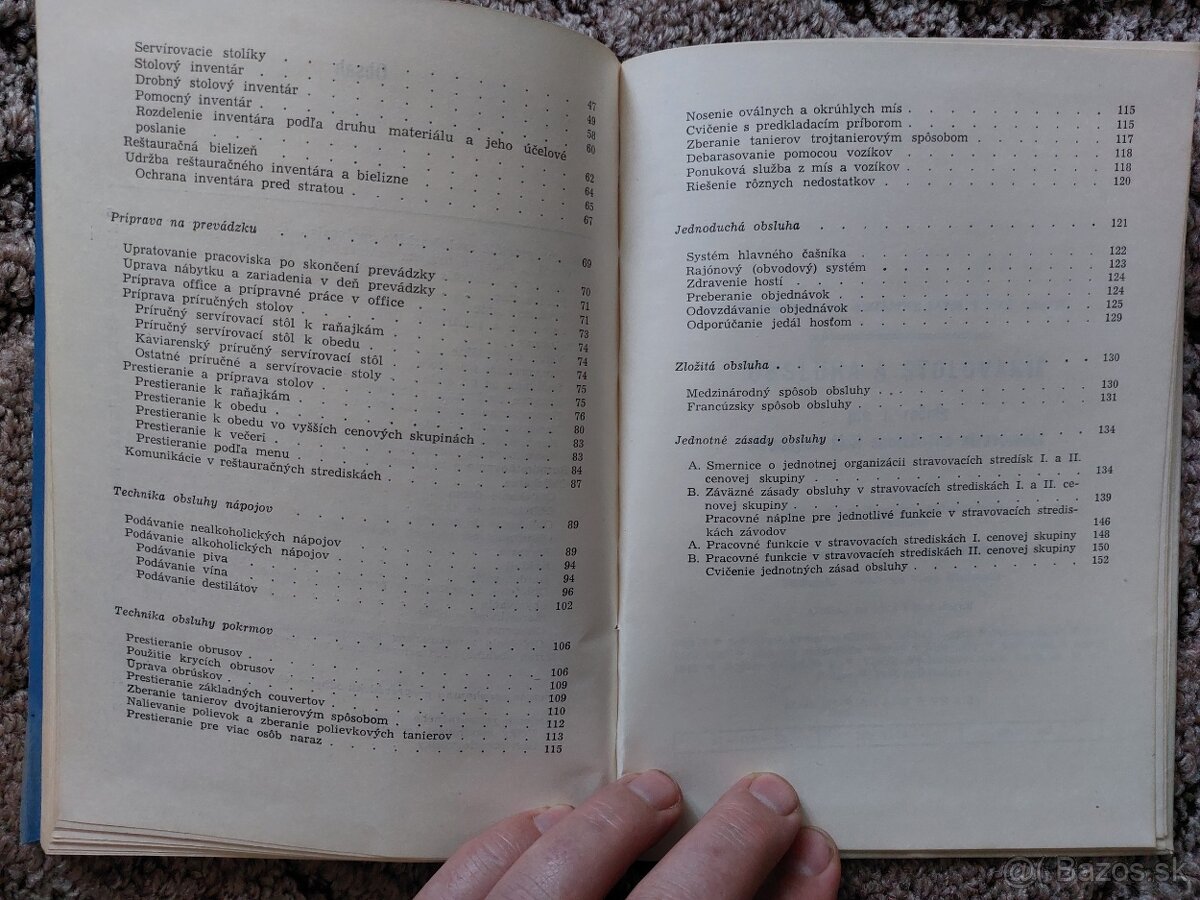 Servírovacie stolíky . . . . . . . . . . . . 47
Stolový inventár . . . . . . . . . . . . 49
Drobný stolový inventár . . . . . . . . . . 58
Pomocný inventár . . . . . . . . . . . . 60
Rozdelenie inventára podľa druhu materiálu a jeho účelové
poslanie . . . . . . . . . . . . . . 62
Reštauračná bielizeň . . . . . . . . . . . . 64
Údržba reštauračného inventára a bielizne . . . . . . 65
Ochrana inventára pred stratou . . . . . . . . 67
Príprava na prevádzku . . . . . . . . . . . . 69
Upratovanie pracoviska po skončení prevádzky . . . . . 70
Úprava nábytku a zariadenia v deň prevádzky . . . . . 71
Príprava office a prípravné práce v office . . . . . . 71
Príprava príručných stolov . . . . . . . . . . 73
Príručný servírovací stôl k raňajkám . . . . . . . 74
Príručný servírovací stôl k obedu . . . . . . . . 74
Kaviarenský príručný servírovací stôl . . . . . . . 74
Ostatné príručné a servírovacie stoly . . . . . . . 75
Prestieranie a príprava stolov . . . . . . . . . 75
Prestieranie k raňajkám . . . . . . . . . . 76
Prestieranie k obedu . . . . . . . . . . . 80
Prestieranie k obedu vo vyšších cenových skupinách . . . . 83
Prestieranie k večeri . . . . . . . . . . . 83
Prestieranie podľa menu . . . . . . . . . . 84
Komunikácie v reštauračných strediskách . . . . . . . 87
Technika obsluhy nápojov . . . . . . . . . . . 89
Podávanie nealkoholických nápojov . . . . . . . . 89
Podávanie alkoholických nápojov . . . . . . . . . 94
Podávanie piva . . . . . . . . . . . . . 94
Podávanie vína . . . . . . . . . . . . . 96
Podávanie destilátov . . . . . . . . . . . 102
Technika obsluhy pokrmov . . . . . . . . . . . 106
Prestieranie obrusov . . . . . . . . . . . . 106
Použitie krycích obrusov . . . . . . . . . . . 109
Úprava obrúskov . . . . . . . . . . . . . 109
Prestieranie základných couvertov . . . . . . . . 110
Zberanie tanierov dvojtanierovým spôsobom . . . . . . 112
Nalievanie polievok a zberanie polievkových tanierov . . . . 113
Prestieranie pre viac osôb naraz . . . . . . . . . 115
Nosenie oválnych a okrúhlych mís . . . . . . . . . 115
Cvičenie s predkladacím príborom . . . . . . . . . 115
Zberanie tanierov trojtanierovým spôsobom . . . . . . 117
Debarasovanie pomocou vozíkov . . . . . . . . . 118
Ponuková služba z mís a vozíkov . . . . . . . . . 118
Riešenie rôznych nedostatkov . . . . . . . . . . 120
Jednoduchá obsluha . . . . . . . . . . . . . 121
Systém hlavného čašníka . . . . . . . . . . . 122
Rajónový (obvodový) systém . . . . . . . . . . 123
Zdravenie hostí . . . . . . . . . . . . . 124
Preberanie objednávok . . . . . . . . . . . 124
Odovzdávanie objednávok . . . . . . . . . . . 125
Odporúčanie jedál hosťom . . . . . . . . . . . 129
Zložitá obsluha . . . . . . . . . . . . . . 130
Medzinárodný spôsob obsluhy . . . . . . . . . . 130
Francúzsky spôsob obsluhy . . . . . . . . . . . 131
Jednotné zásady obsluhy . . . . . . . . . . . 134
A. Smernice o jednotnej organizácii stravovacích stredísk I. a II.
cenovej skupiny . . . . . . . . . . . . . 134
B. Záväzné zásady obsluhy v stravovacích strediskách I. a II. ce-
novej skupiny . . . . . . . . . . . . . 139
Pracovné náplne pre jednotlivé funkcie v stravovacích stredis-
kách závodov . . . . . . . . . . . . . 146
A. Pracovné funkcie v stravovacích strediskách I. cenovej skupiny 148
B. Pracovné funkcie v stravovacích strediskách II. cenovej skupiny 150
Cvičenie jednotných zásad obsluhy . . . . . . . . 152
Bazos.sk